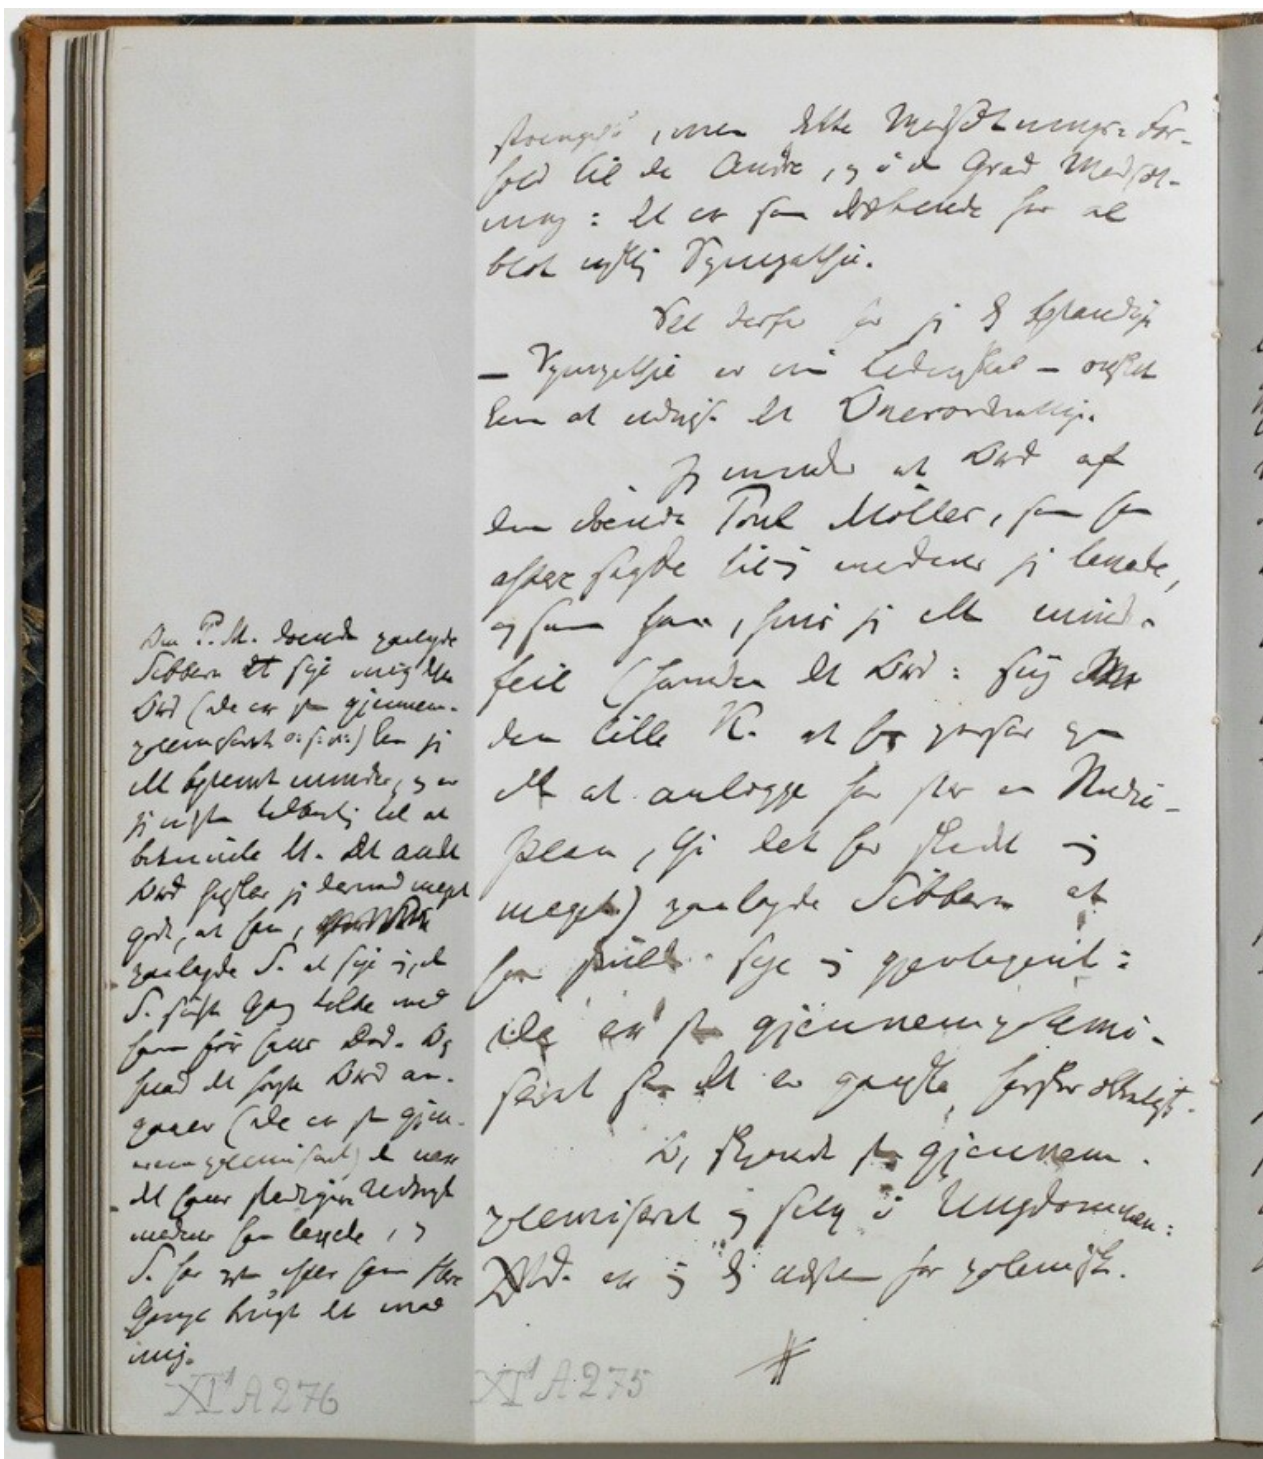 men dette Modsætnings-For-
hold til de Andre, og i den Grad Modsæt-
ning: det er som dræbende for al
blot Sympathie.
Det derfor har jeg bestandigt
– Sympathie er min Lidenskab – ønsket
kun at det Overordentlige.
Jeg mindes et Ord af
den døende Poul Møller, som han
ofte sagde til mig medens levede,
og som han, hvis jeg ikke mindes
feil (foruden det Ord: siig
den lille K. at han passer paa
ikke at anlægge for stor en Studie-
plan, thi det har skadet mig
meget) paalagde Sibbern at
han skulde sige mig gjentagent:
De er saa gjennempolemi-
seret saa det er ganske forskrækkeligt.
Og, skjøndt saa gjennem-
polemiseret jeg selv i Ungdommen:
er jeg næsten for polemisk.
Om P.M. døende paalagde
Sibbern at sige mig dette
Ord (De er saa gjennem-
polemiseret o: s: v:) kan jeg
ikke bestemt mindes, og er
jeg næsten tilbøielig til at
betvivle det. Det andet
Ord husker jeg derimod meget
godt, at han,
paalagde S. at sige mig, da
S. sidste Gang talte med
ham før hans Død. Og
hvad det første Ord an-
gaaer (De er saa gjen-
nempolemiseret) da var
det hans stadigen Udsagn
medens han levede, og
S. har efter ham flere
Gange brugt det mod
mig.
XI¹ A 276
XI¹ A 275